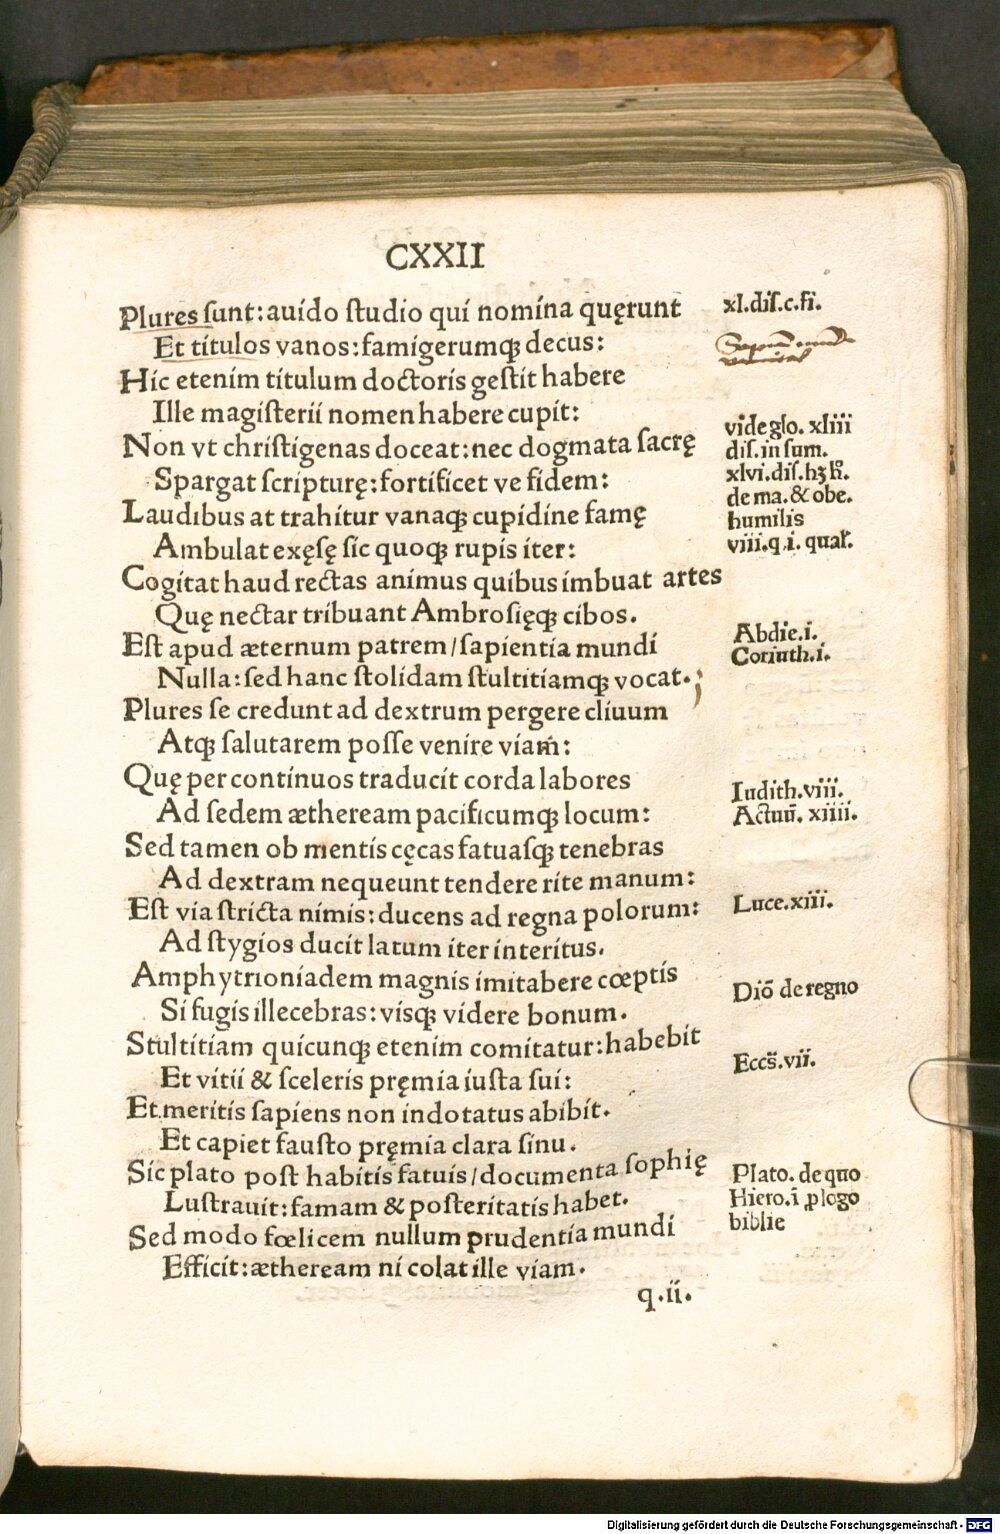 CXXII
Plures ſunt:auido ſtudio qui nomina quęrunt
xl.diſ.c.fi.
Et titulos vanos:famigerumqꝫ decus:
Hic etenim titulum doctoris geſtit habere
Ille magiſterii nomen habere cupit:
Non vt chriſtigenas doceat:nec dogmata ſacrę
Spargat ſcripturę:fortificet ve fidem:
Laudibus at trahitur vanaqꝫ cupidine famę
Ambulat exęſę ſic quoqꝫ rupis iter:
vide glo. xliii
diſ. in ſum.
xlvi.diſ.hꝫ
de ma. & obe.
humilis
viii.q.i. qual̃.
Cogitat haud rectas animus quibus imbuat artes
Quę nectar tribuant Ambroſięqꝫ cibos.
Eſt apud æternum patrem/ſapientia mundi
Nulla:ſed hanc ſtolidam ſtultitiamqꝫ vocat.
Abdie.i.
Corinth.i.
Plures ſe credunt ad dextrum pergere cliuum
Atqꝫ ſalutarem poſſe venire viam̃:
Quę per continuos traducit corda labores
Ad ſedem ætheream pacificumqꝫ locum:
Iudith.viii.
Actuũ. xiiii.
Sed tamen ob mentis cęcas fatuaſqꝫ tenebras
Ad dextram nequeunt tendere rite manum:
Eſt via ſtricta nimis:ducens ad regna polorum:
Luce.xiii.
Ad ſtygios ducit latum iter interitus.
Amphytrioniadem magnis imitabere cœptis
Dio᷑ de regno
Si fugis illecebras:viſqꝫ videre bonum.
Stultitiam quicunqꝫ etenim comitatur:habebit
Eccs̃.vii.
Et vitii & ſceleris pręmia iuſta ſui:
Et meritis ſapiens non indotatus abibit.
Et capiet fauſto pręmia clara ſinu.
Sic plato poſt habitis fatuis/documenta ſophię
Luſtrauit:famam & poſteritatis habet.
Plato. de quo
Hiero.ĩ ꝓlogo
biblie
Sed modo fœlicem nullum prudentia mundi
Efficit:ætheream ni colat ille viam.
q.ii.
Digitalisierung gefördert durch die Deutsche Forschungsgemeinschaft - DFG